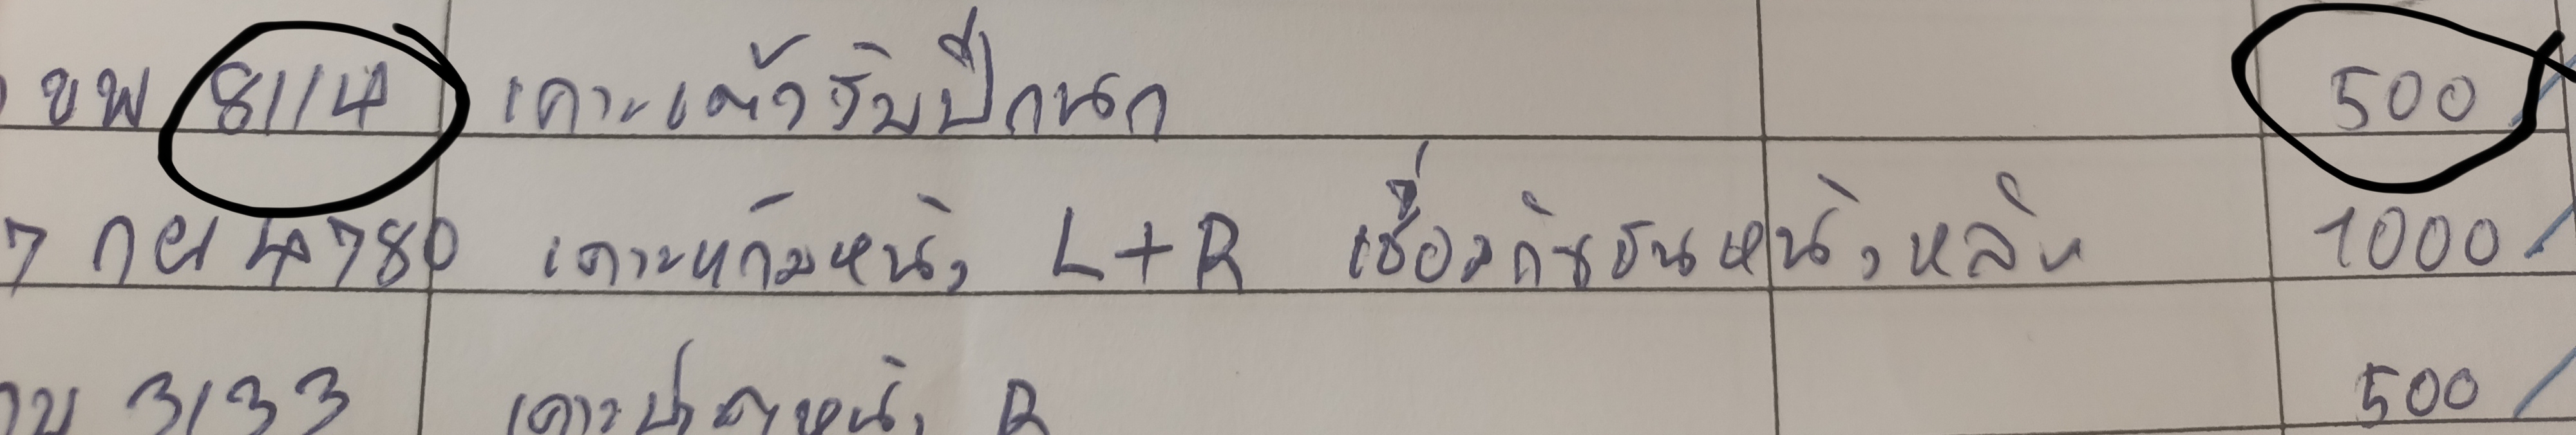 ขพ 8114 เคาะเต้ารับปีกนก 500
7 กผ 4780 เคาะแก้มหน้า L+R เชื่อมกันชนหน้า, หลัง 1000
3133 เคาะประตูหน้า R 500